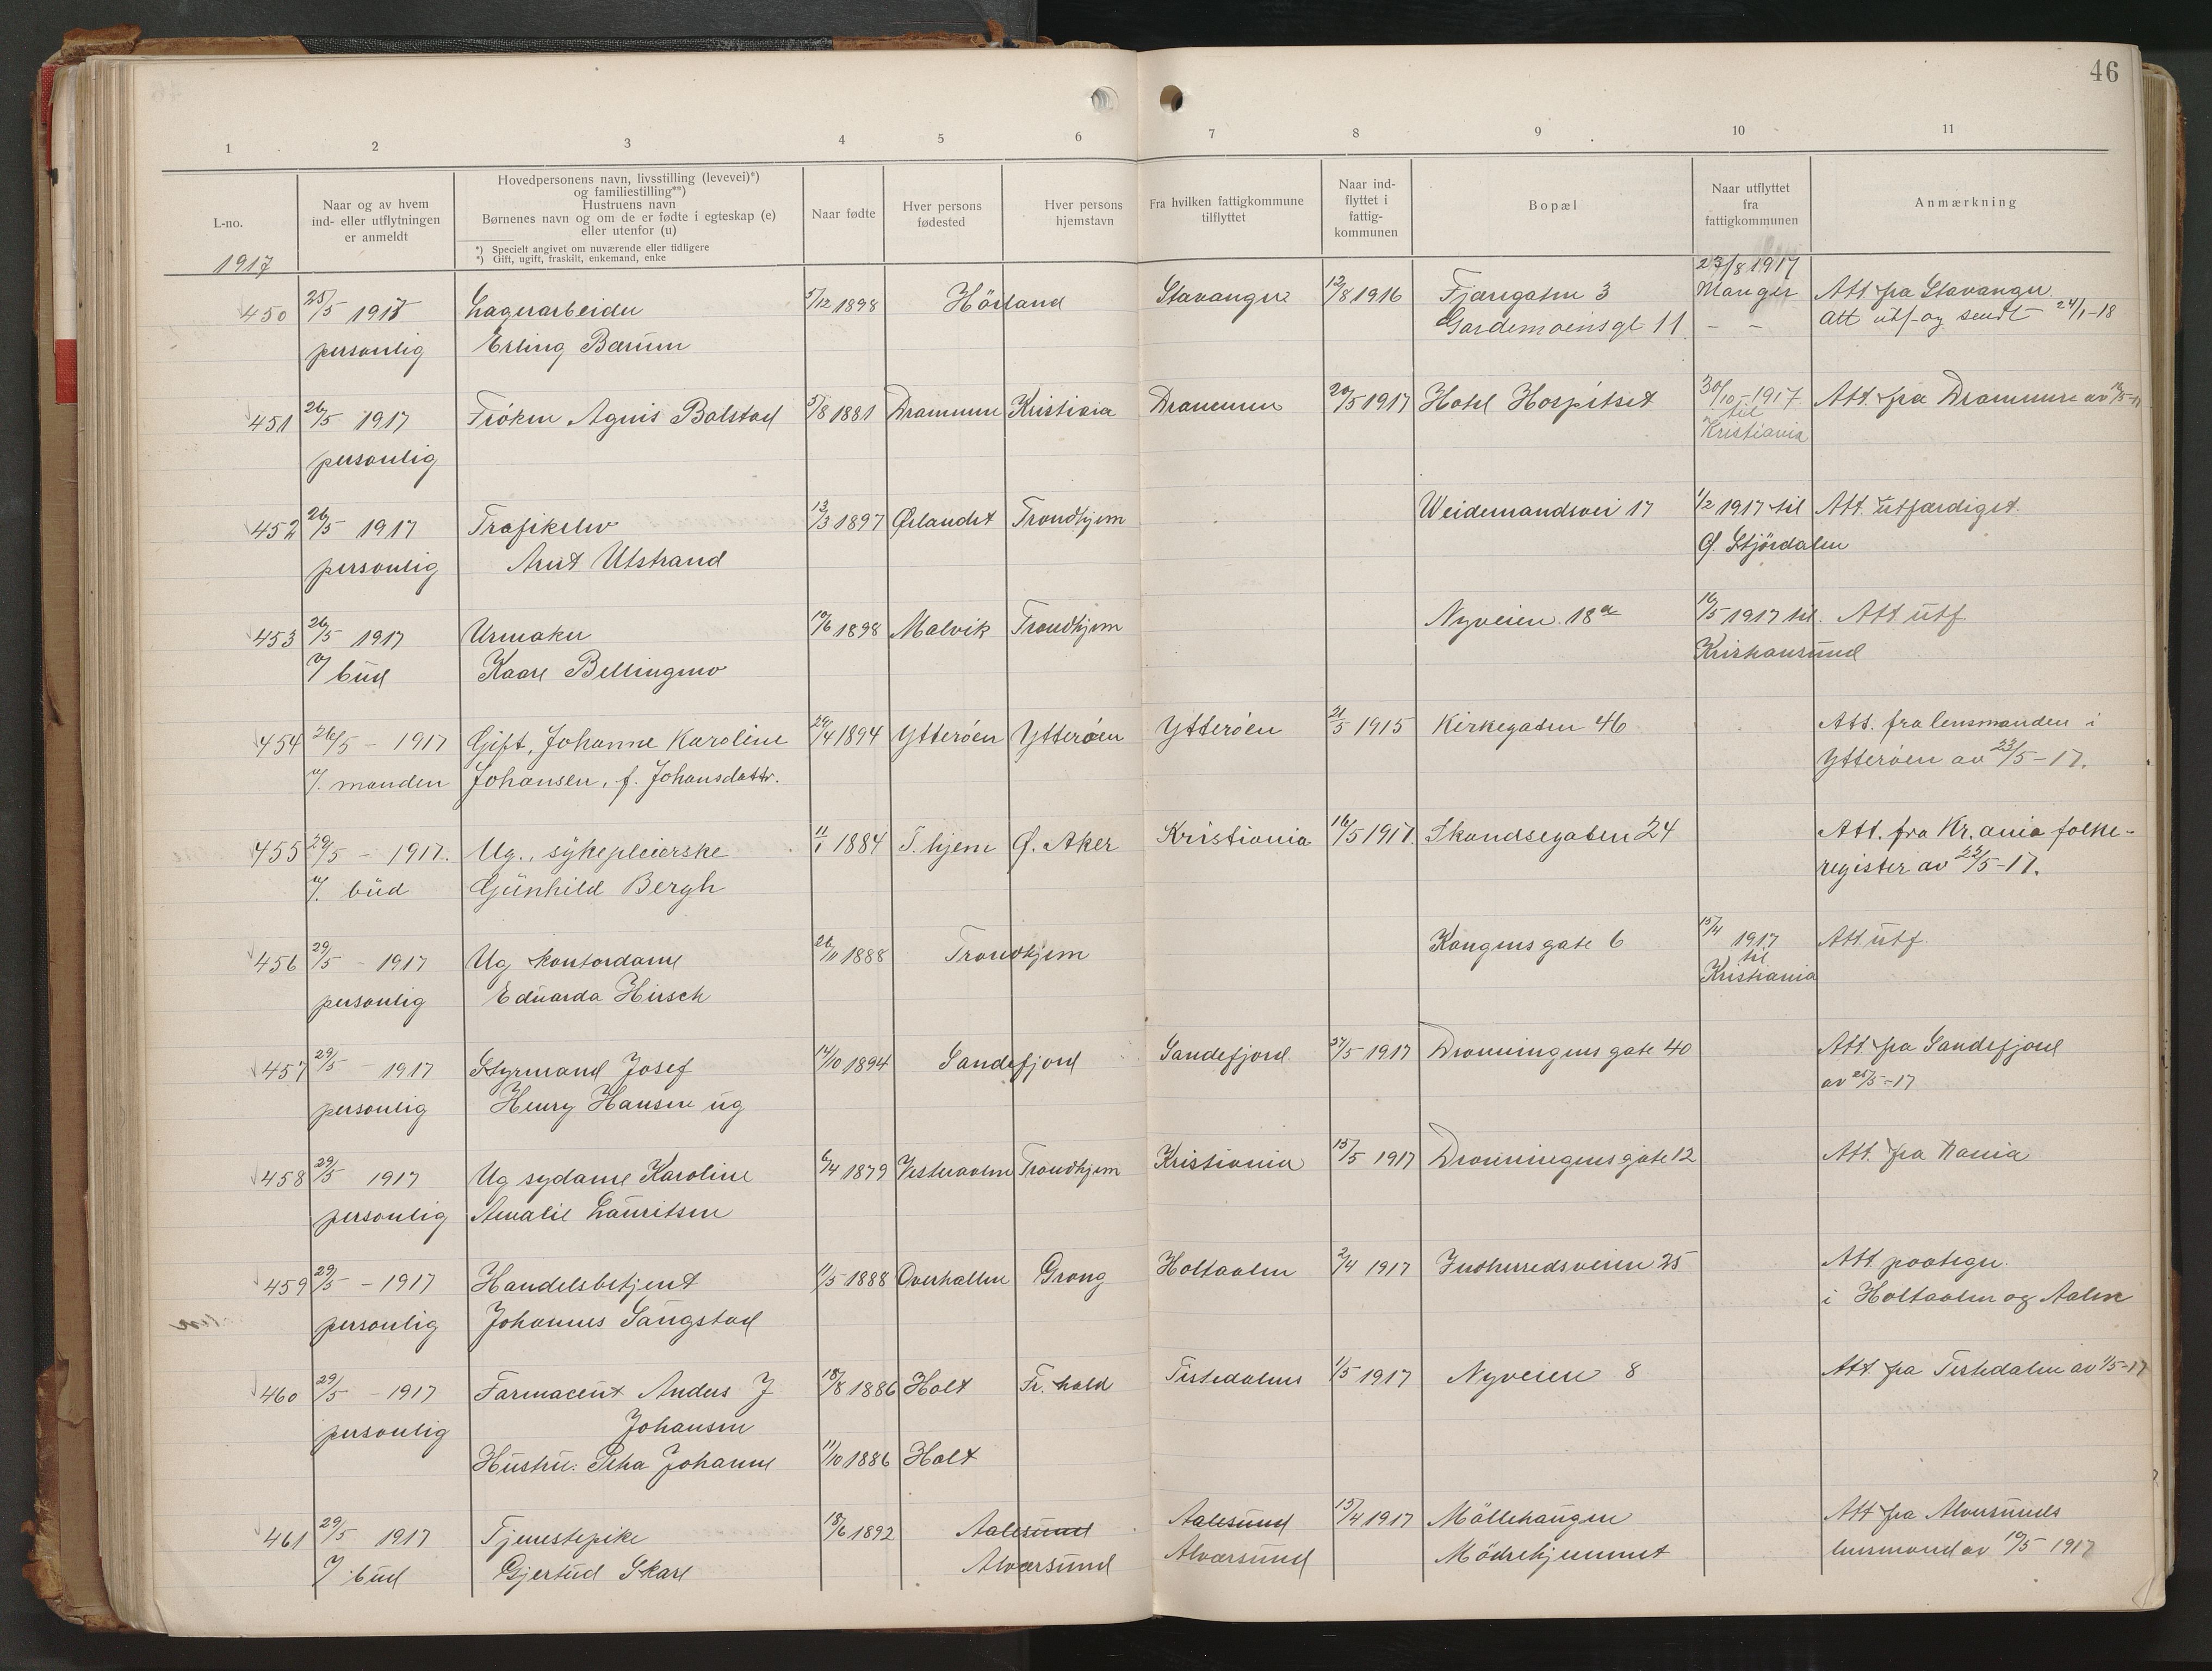 46
1 2 3 4 5 6 7 8 9 10 11
L-no.
1917
Naar og av hvem
ind- eller utflytningen
er anmeldt
Hovedpersonens navn, livsstilling (levevei)*)
og familiestilling**)
Hustruens navn
Børnenes navn og om de er fødte i egteskap (e)
eller utenfor (u)
*) Specielt angivet om nuværende eller tidligere
*) Gift, ugift, fraskilt, enkemand, enke
Naar fødte
Hver persons
fødested
Hver persons
hjemstavn
Fra hvilken fattigkommune
tilflyttet
Naar ind-
flyttet i
fattig-
kommunen
Bopæl
Naar utflyttet
fra
fattigkommunen
Anmærkning
23/8 1917
450 25/5 1917 Lagerarbeider 5/12 1898 Stavanger 12/8 1916 Fjæregaten 3 Manger Att. fra Stavanger
Gardemoensgt 11. - - Att utf. og sendt 24/1-18
personlig Erling Bærum
451 26/5 1917 Frøken Agnes Bolstad 5/8 1881 Drammen Kristiania Drammen 20/5 1917 Hotel Hospitset 30/10-1917 Att. fra Drammen av
til
Kristiania
personlig
452 26/5 1917 Trafikelev 13/3 1897 Ørlandet Trondhjem Weidemandsvei 17 1/2 1917 til Att. utfærdiget.
personlig Arnt Utstrand Ø. Stjørdalen
453 26/5 1917 Urmaker 10/6 1898 Malvik Trondhjem Nyveien 18a 16/5 1917 til Att utf.
v/ bud Kaare Bellingmo Kristiansund
454 26/5 - 1917 Gift, Johanne Karoline 29/4 1894 Ytterøen Ytterøen Ytterøen 21/5 1915 Kirkegaten 46 Att. fra lensmanden i
v/. manden Johansen, f. Johansdattr. Ytterøen av 23/5-17.
455 29/5 - 1917. Ug., sykepleierske 11/1 1884 T. hjem Ø. Aker Kristiania 16/5 1917. Skandsegaten 24 Att. fra Kr.ania folke-
v/. bud Gunhild Bergh register av 23/5-17.
456 29/5 - 1917 Ug kontordame 26/11 1888 Trondhjem Kongens gate 6 15/4 1917 Att utf.
til
personlig Eduarda Hirsch Kristiania
457 29/5 - 1917 Styrmand Josef 14/10 1894 Sandefjord Sandefjord 27/5 1917 Dronningens gate 40 Att. fra Sandefjord
av 25/5-17
personlig Henry Hansen ug
458 29/5 1917 Ug sydame Karoline 6/4 1879 Vesteraalen Trondhjem Kristiania 15/5 1917 Dronningens gate 12 Att. fra Kania
personlig Amalie Lauritsen
459 29/5 - 1917 Handelsbetjent 11/5 1888 Overhallen Grong Holtaalen 2/4 1917 Indherredsveien 25 Att. paategn.
personlig Johannes Saugstad i Holtaalen og Aalen
460 29/5 - 1917 Farmaceut Anders J 18/8 1886 Holt Fr. hald Tistedalen 1/5 1917 Nyveien 8 Att. fra Tistedalen av 1/5-17
personlig Johansen
Hustru: Johanne 11/10 1886 Holt
461 29/5 1917 Tjenestepike 18/6 1892 Aalesund Aalesund 15/4 1917 Møllehaugen Att fra Alversunds
v/ bud Gjertrud Skare Alversund Alversund Mødrehjemmet lensmand av 19/5 1917